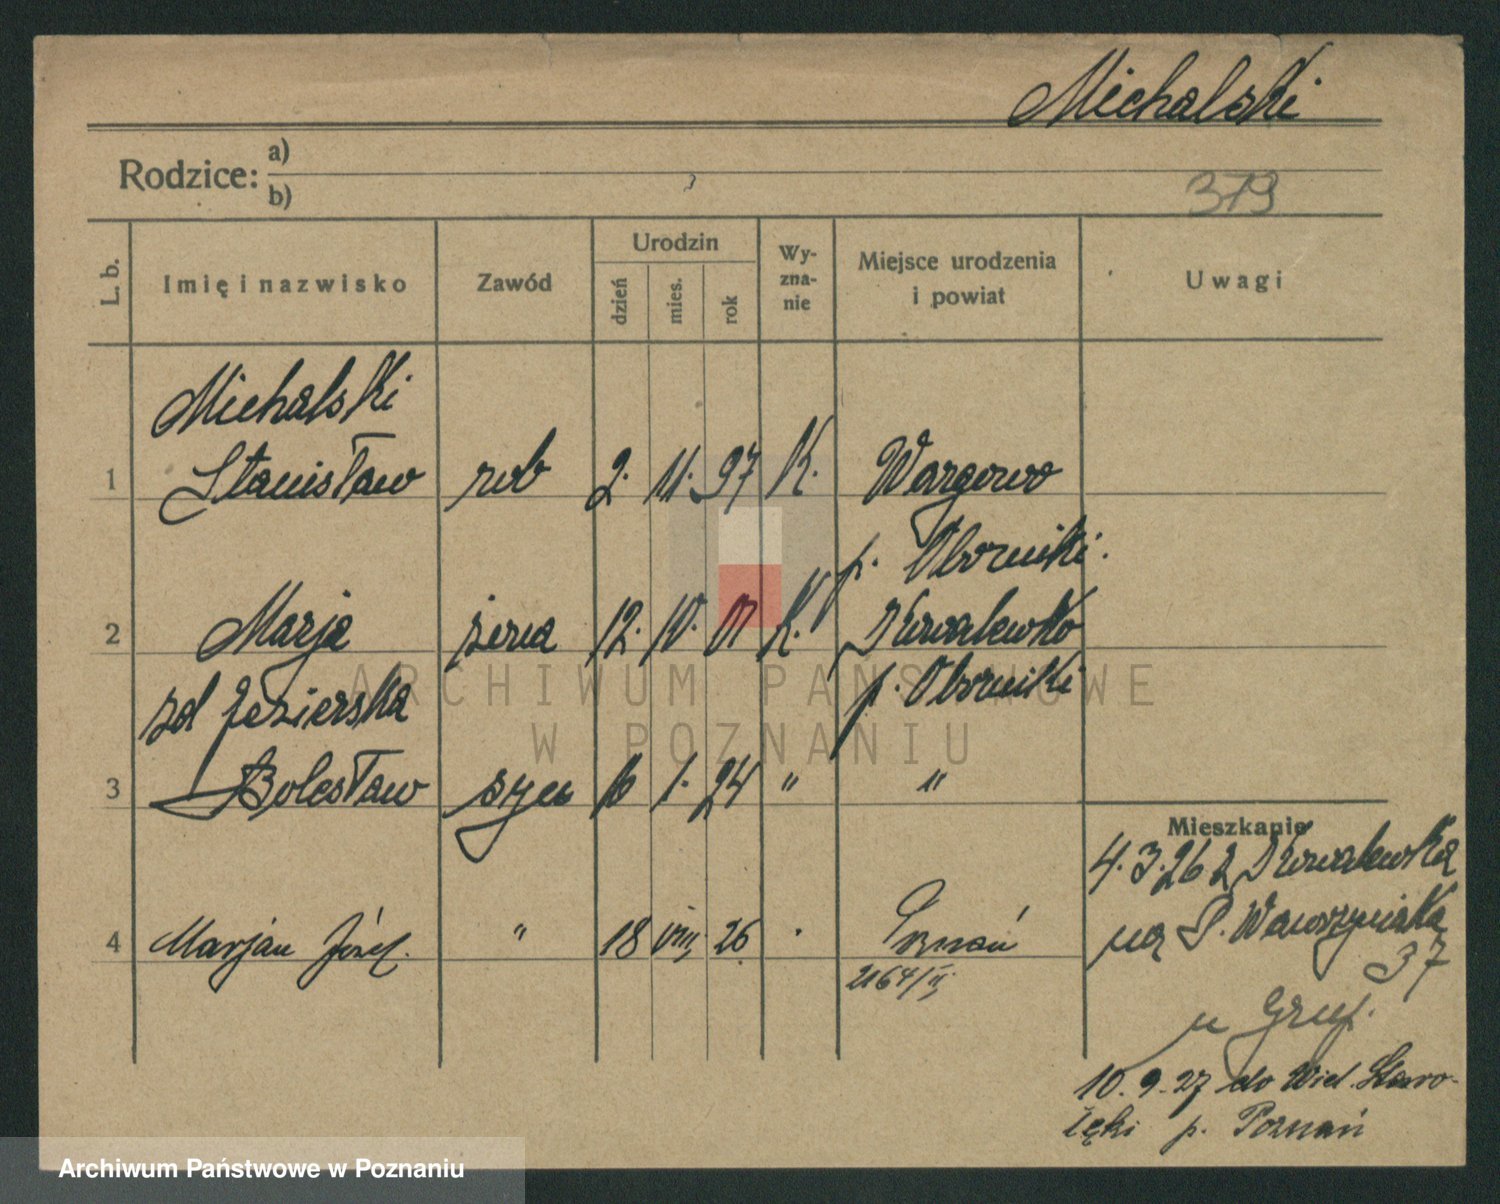 Michalski
Rodzice: a)
b)
379
L. b.
Imię i nazwisko
Zawód
Urodzin
dzień
mies.
rok
Wy-
zna-
nie
Miejsce urodzenia
i powiat
Uwagi
Michalski
1 Stanisław rob 2. 11. 97 K. Wargowo
p. Oborniki.
2 Marja żona 12. IV. 01 K.
zd Jezierska p. Oborniki
3 Bolesław syn 6 1. 24 " "
Mieszkanie
4. 3. 26 z
4 Marjan Józef. " 18 VIII 26 Poznań
na P. Wawrzyniaka
37
2164/II,
u
10. 9. 27 do Wiel. Staro-
łęki p. Poznań
ARCHIWUM PAŃSTWOWE
W POZNANIU
Archiwum Państwowe w Poznaniu